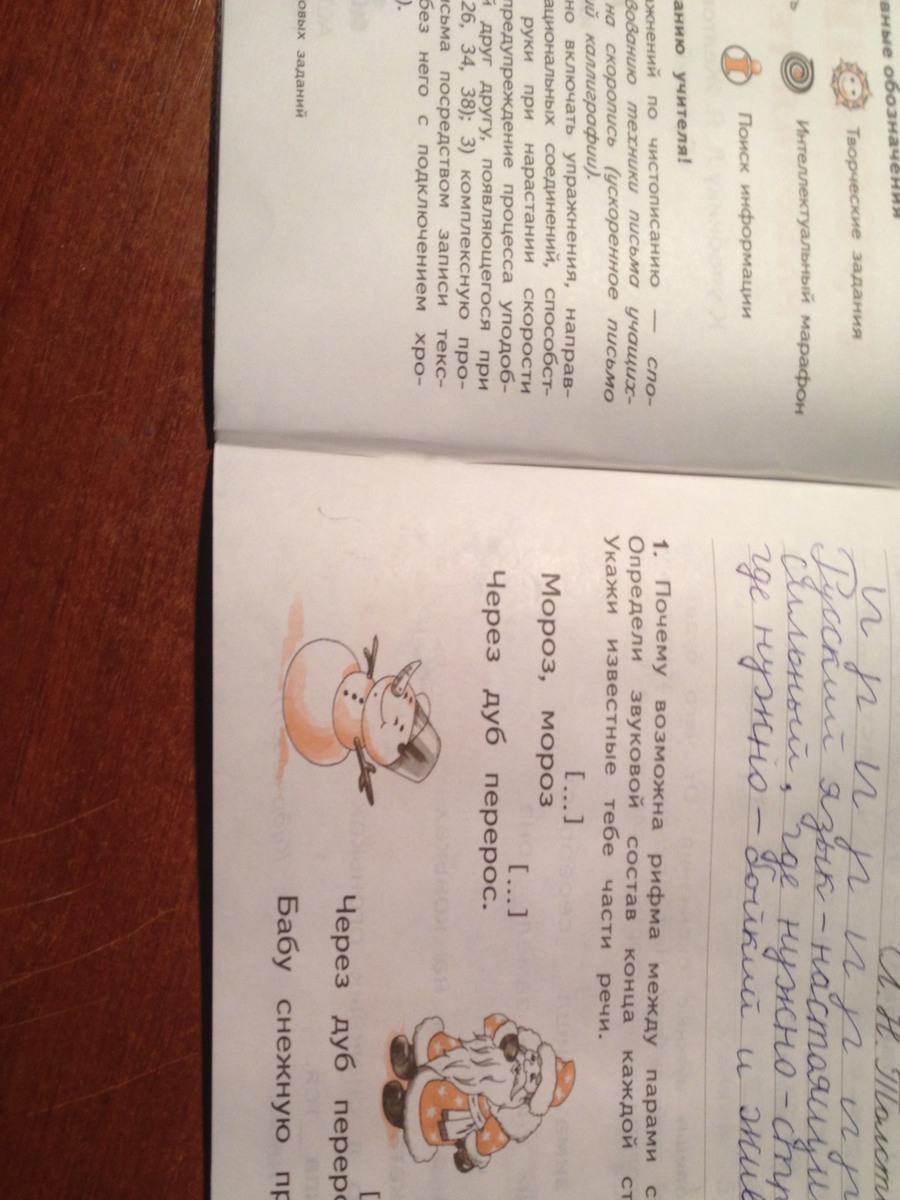 вные обозначения
Творческие задания
ь Интеллектуальный марафон
Поиск информации
анию учителя!
ажнений по чистописанию — спо-
вованию техники письма учащих-
на скоропись (ускоренное письмо
ий каллиграфии).
но включать упражнения, направ-
ациональных соединений, способст-
руки при нарастании скорости
предупреждение процесса уподоб-
й друг другу, появляющегося при
26, 34, 38); 3) комплексную про-
исьма посредством записи текс-
без него с подключением хро-
).
овых заданий
Л. Н. Толст
и п и п и п и п и п
Русский язык – настоящи
сильный, где нужно – стр
где нужно – бойкий и жив
1. Почему возможна рифма между парами с
Определи звуковой состав конца каждой ст
Укажи известные тебе части речи.
[...]
Мороз, мороз
[...]
Через дуб перерос.
[
Через дуб перер
Бабу снежную пр